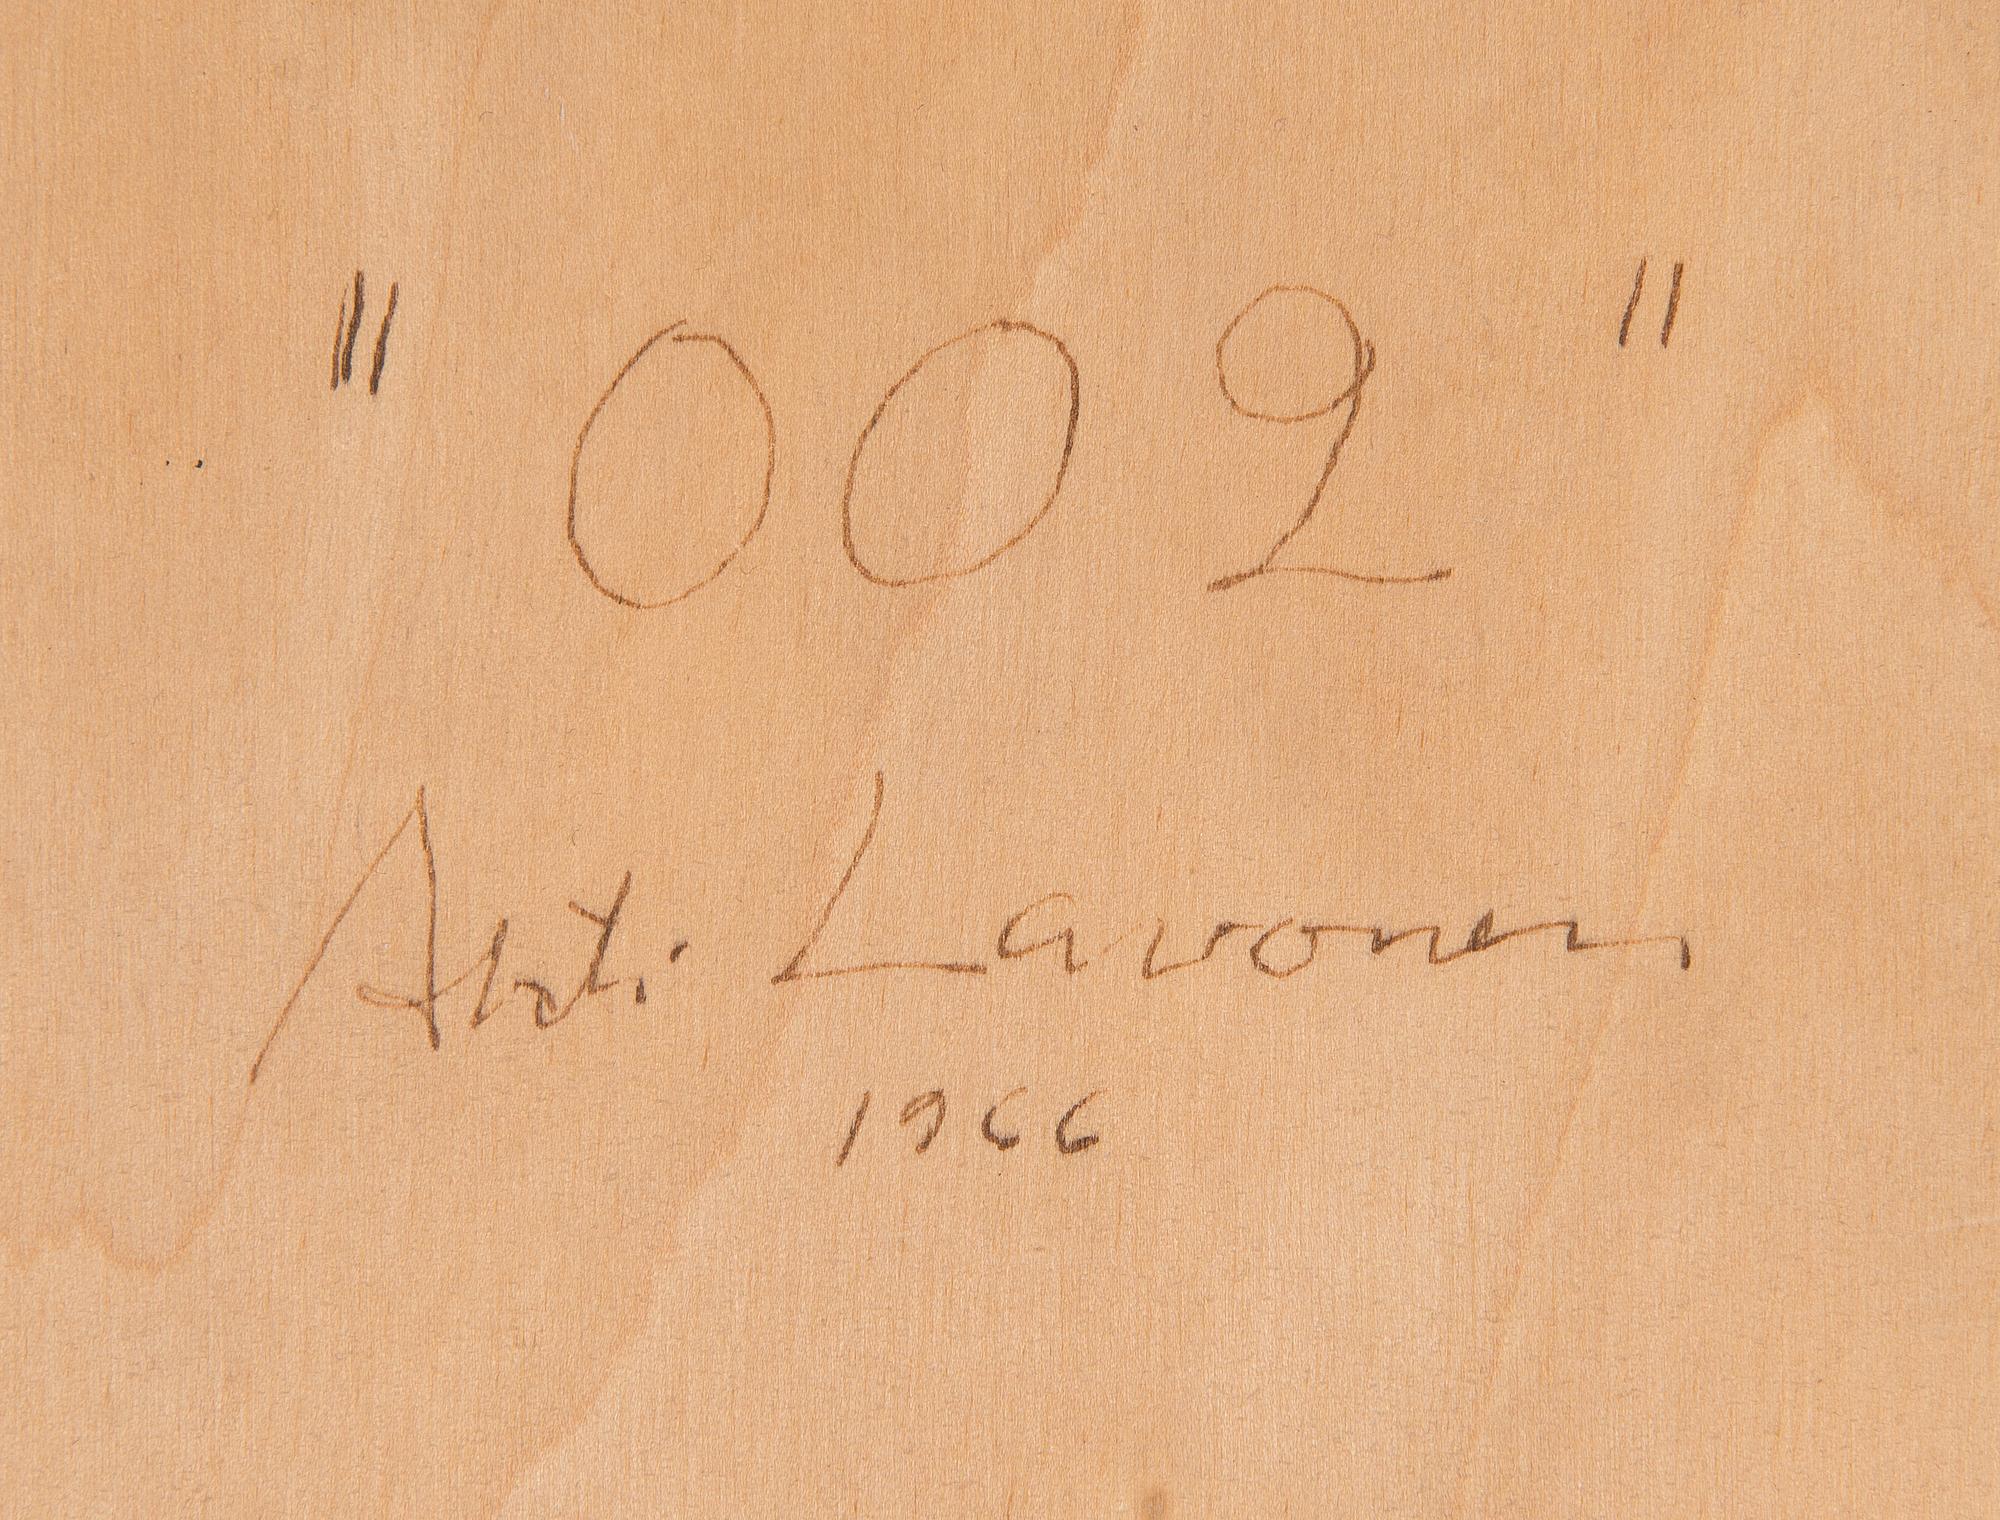 "002"
Ahti Lavonen
1966